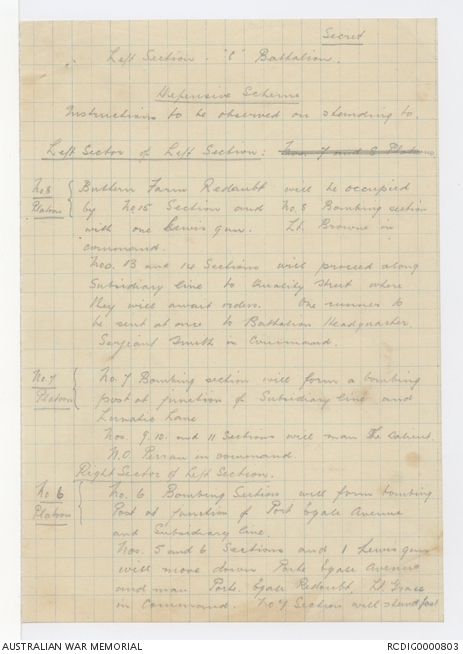 Secret
Left Section. "C" Battalion.
Defensive Scheme
Instructions to be observed on standing to.
Left Sector of Left Section: Nos. 7 and 8 Platoons
No 8
Platoon
Buttern Farm Redoubt will be occupied
by No 15 Section and No. 8 Bombing section
with one Lewis gun. Lt. Browne in
command.
Nos. 13 and 14 Sections will proceed along
Subsidiary line to Quality Street where
they will await orders. One runner to
be sent at once to Battalion Headquarters
Sergeant Smith in Command.
No. 7
Platoon
No. 7 Bombing section will form a bombing
post at junction of Subsidiary line and
Lunatic Lane
Nos. 9. 10. and 11 Sections will man the salient.
in command.
Right Sector of Left Section.
No 6
Platoon
No. 6 Bombing Section will form bombing
Post at junction of Port Egale Avenue
and Subsidiary line.
Nos. 5 and 6 Sections and 1 Lewis gun
will move down Porte Egale Avenue
and man Porte. Egale Redoubt. Lt. Grace
in Command. No 7 Section will stand fast
AUSTRALIAN WAR MEMORIAL
RCDIG0000803